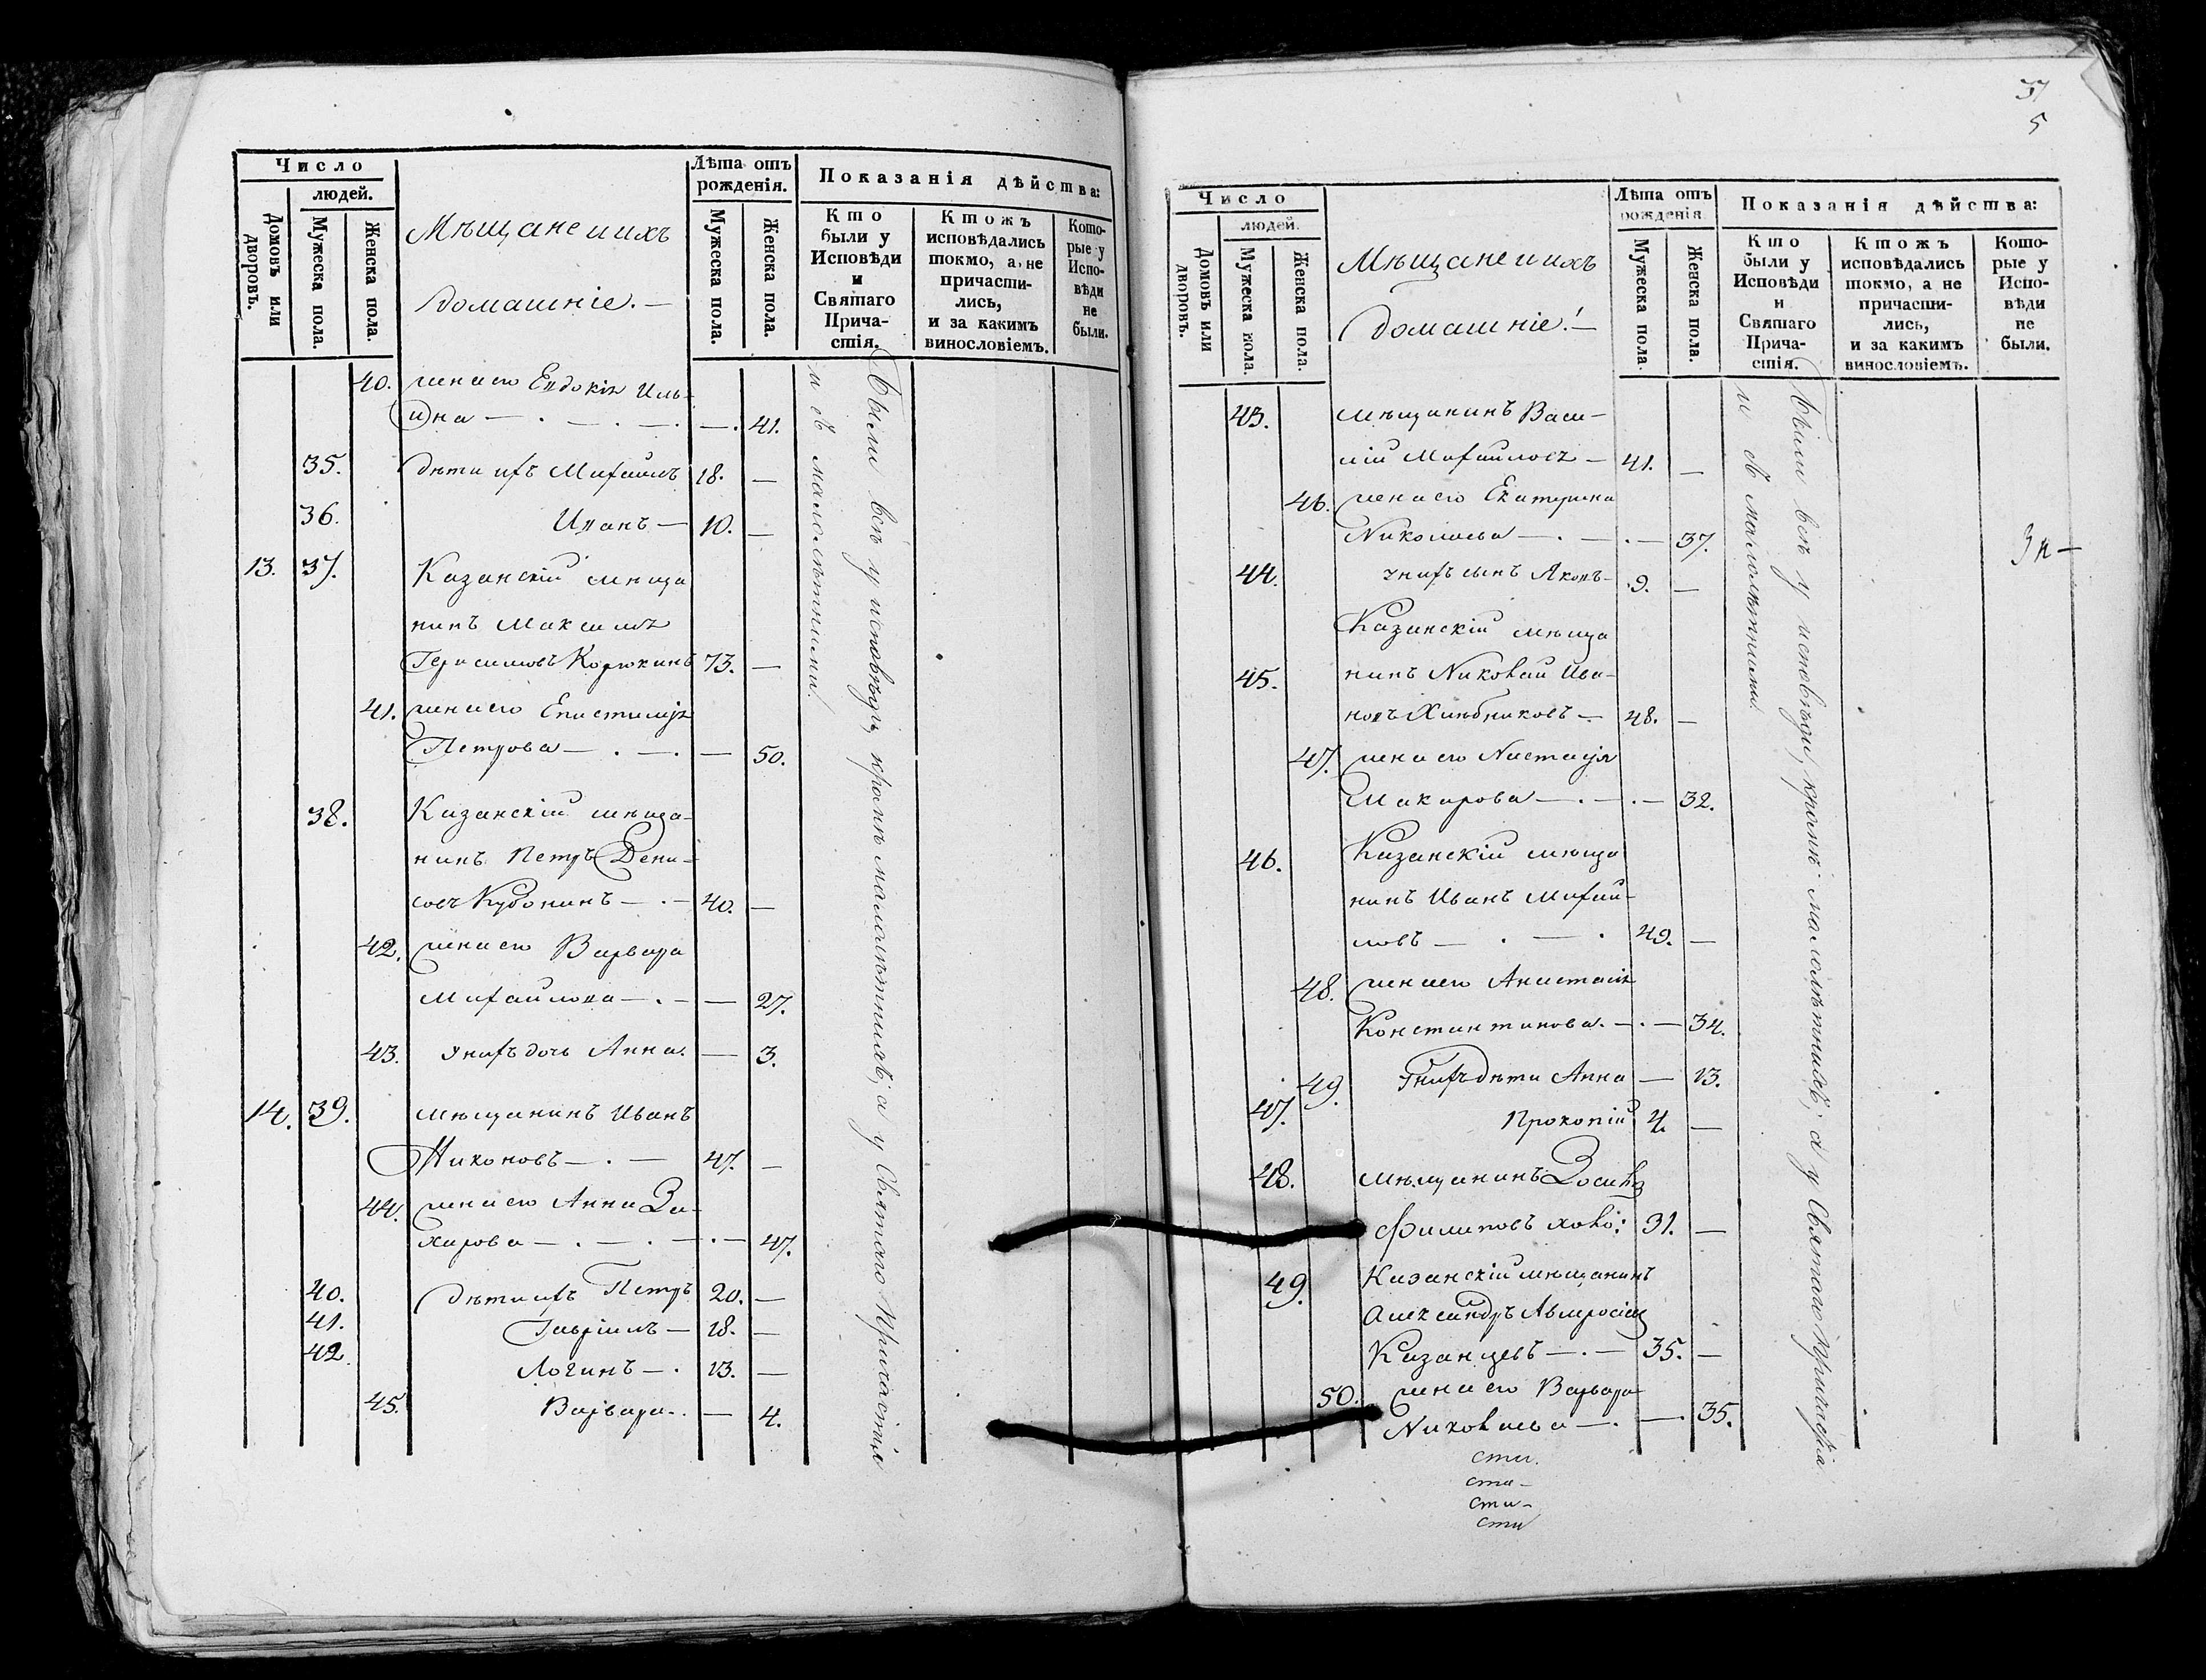 Число
людей.
Домовъ или дворовъ.
Мужеска пола.
Женска пола.
Мѣщане и ихъ
домашніе. —
Лѣта отъ
рожденія.
Мужеска пола.
Женска пола.
Показанія дѣйства:
Кто
были у
Исповѣди
и
Святаго
Прича-
стія.
Ктожъ
исповѣдались
токмо, а не
причасти-
лись,
и за какимъ
винословіемъ.
Кото-
рые у
Испо-
вѣди
не
были.
40. жена его Евдокія Иль-
ина — . — . — . — . 41.
35. дѣти ихъ Михаилъ 18. —
36. Иванъ — 10. —
13. 37. Казанскій мѣща
нинъ Максимъ
Герасимовъ Корюкинъ 73. —
41. жена его Епистимія
Петрова — . — . — 50.
38. Казанскій мѣща-
нинъ Петръ Дени-
совъ Кубонинъ — . — 40. —
42. жена его Варвара
Михайлова — . — — 27.
43. У нихъ дочь Анна. — 3.
14. 39. мѣщанинъ Иванъ
Никоновъ — . — 47. —
44. жена его Анна За-
харова — . — . — . — 47.
40. дѣти ихъ Петръ 20. —
41. Гавріилъ — 18. —
42. Логинъ — . 13. —
45. Варвара . — 4.
Были всѣ у исповѣди, кромѣ малолѣтнихъ, а у Святаго Причастія
и съ малолѣтними.
37
5
Число
людей.
Домовъ или дворовъ.
Мужеска пола.
Женска пола.
Мѣщане и ихъ
домашніе! —
Лѣта отъ
рожденія.
Мужеска пола.
Женска пола.
Показанія дѣйства:
Кто
были у
Исповѣди
и
Святаго
Прича-
стія.
Ктожъ
исповѣдались
токмо, а не
причасти-
лись,
и за какимъ
винословіемъ.
Кото-
рые у
Испо-
вѣди
не
были.
43. мѣщанинъ Васи-
лій Михайловъ — 41. —
46. жена его Екатерина
Николаева — . — . — 37.
44. у нихъ сынъ Яковъ — 9. —
Казанскій мѣща
45. нинъ Николай Ива-
новъ Хлѣбниковъ — 48. —
47. жена его Настасія
Макарова — . — . — 32.
46. Казанскій мѣща
нинъ Иванъ Михай-
ловъ — . — . 49. —
48. жена его Анастасія
Константинова. — . — 34.
49. У нихъ дѣти Анна — 13.
47. Прокопій 4. —
48. мѣщанинъ
Филиповъ холо: 31. —
49. Казанскій мѣщанинъ
Александръ
Казанцевъ — . — 35. —
50. жена его Варвара
Николаева — . — . 35.
Были всѣ у исповѣди, кромѣ малолѣтнихъ; а у Святаго Причастія
и съ малолѣтними.